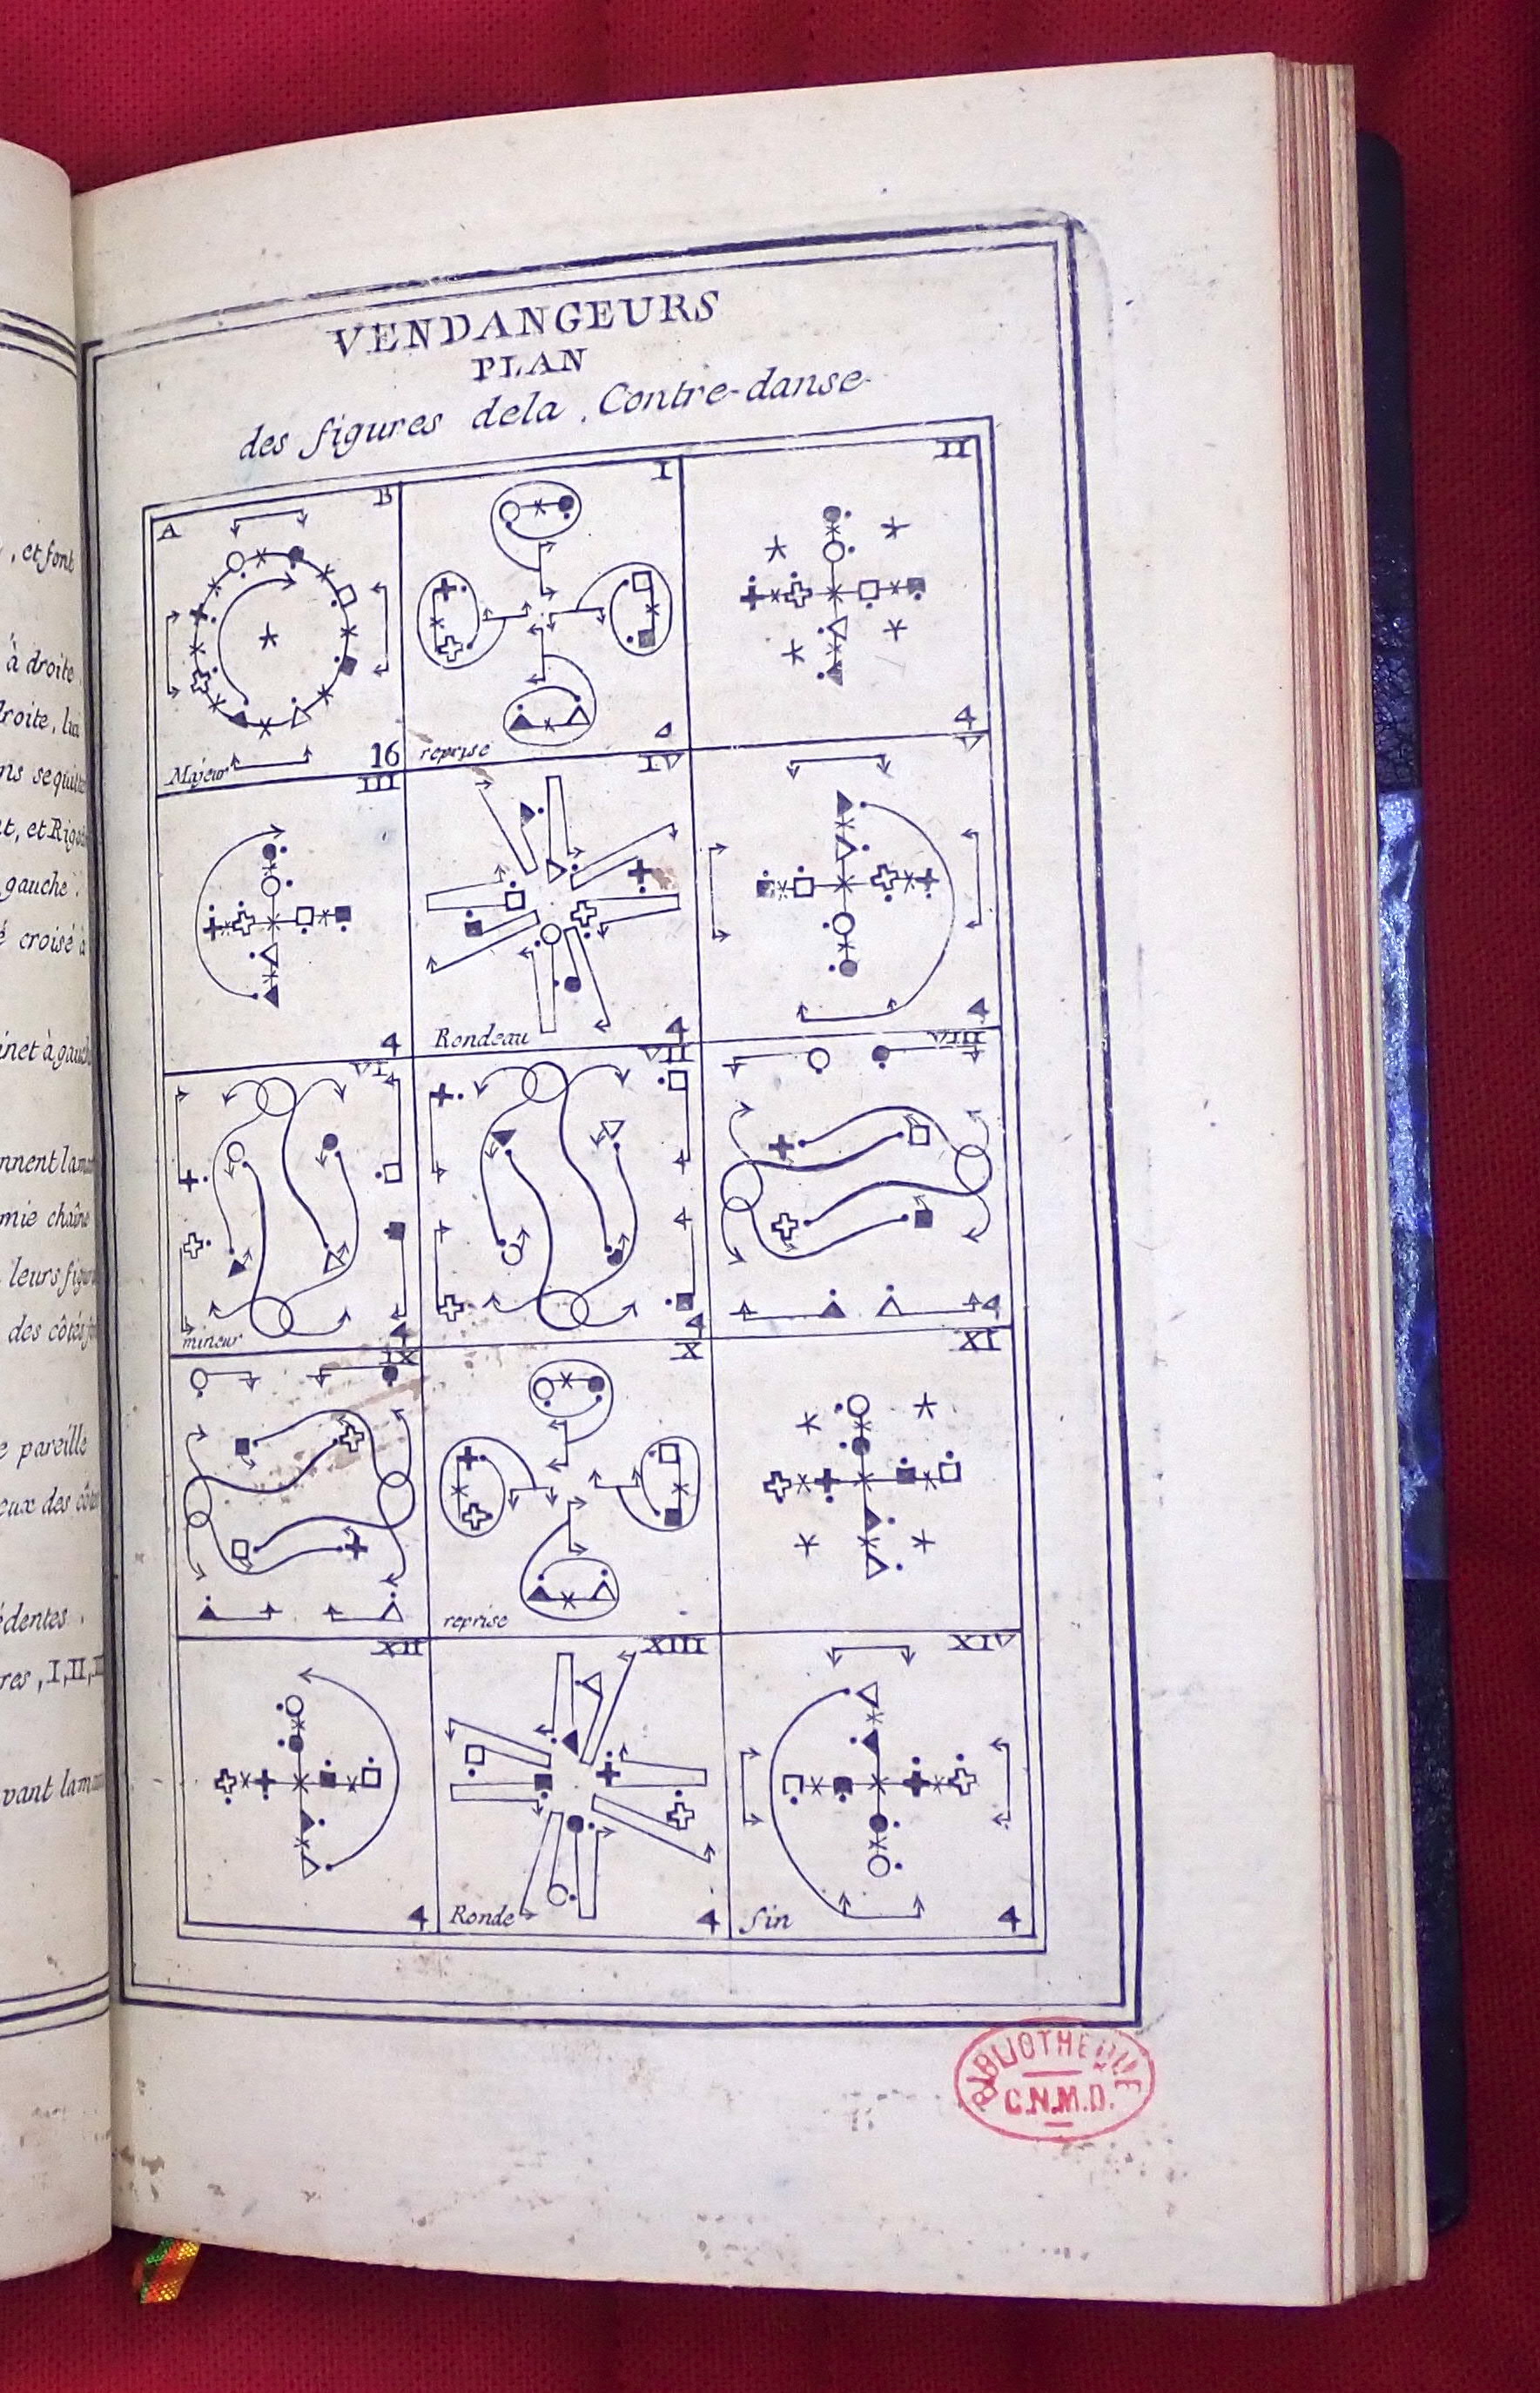 , et font
à droite.
droite, lui
ns se quitte
et Rig
gauche.
croisé à
net à gauche
nnent la
mie chaîne
leurs fig
des côtés
pareille
eux des côtés
édentes.
res, I, II,
vant la
VENDANGEURS
PLAN
des figures dela Contre-danse
A B
Majeur 16
I
reprise 4
II
4
III
4
IV
Rondeau 4
V
4
VI
mineur 4
VII
4
VIII
4
IX
X
reprise
XI
XII
4
XIII
Ronde 4
XIV
fin 4
BIBLIOTHEQUE
C.N.M.D.